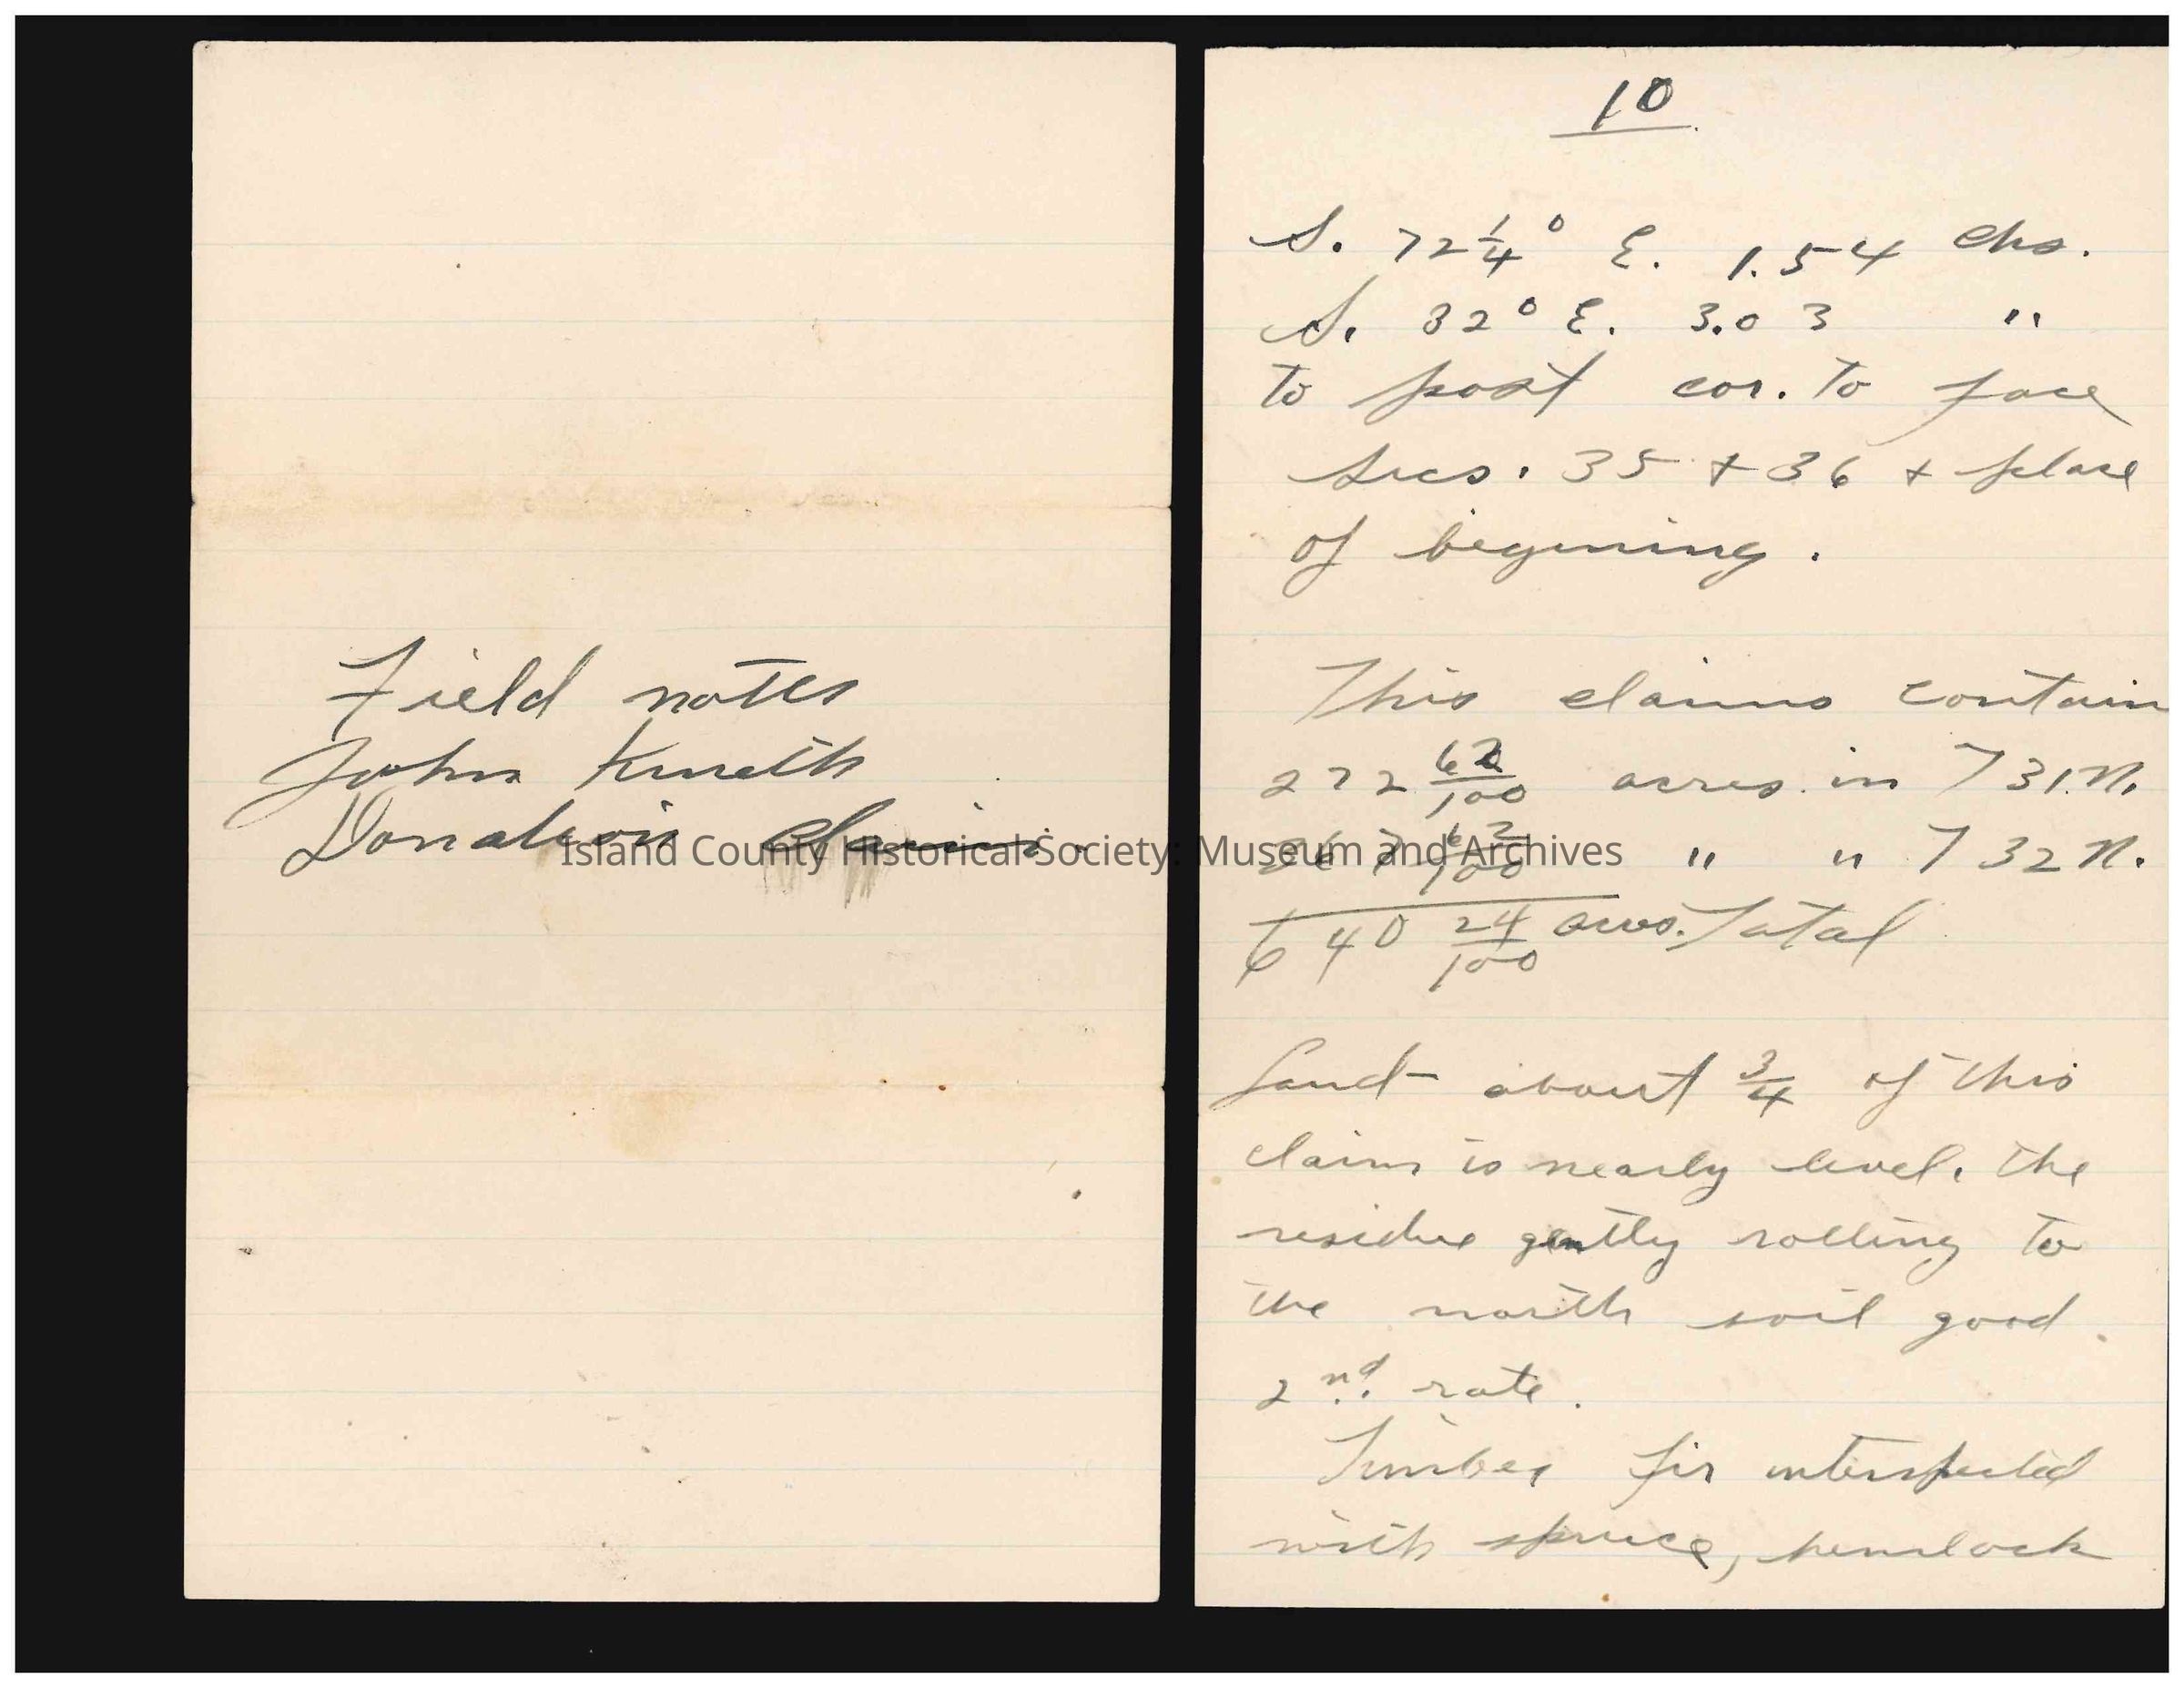 Field notes
John Kineth
Donation claim.
10
S. 72 1/4° E. 1.54 chs.
S. 32° E. 3.03 "
to post cor. to frac
secs. 35 + 36 + place
of begining.
This claims contain
272 62/100 acres in T 31. N.
367 62/100 " " T 32 N.
640 24/100 acres. Total
Land - about 3/4 of this
claim is nearly level, the
residue gently rolling to
the north soil good
2nd. rate.
Timber fir interspected
with spruce, hemlock
Island County Historical Society: Museum and Archives